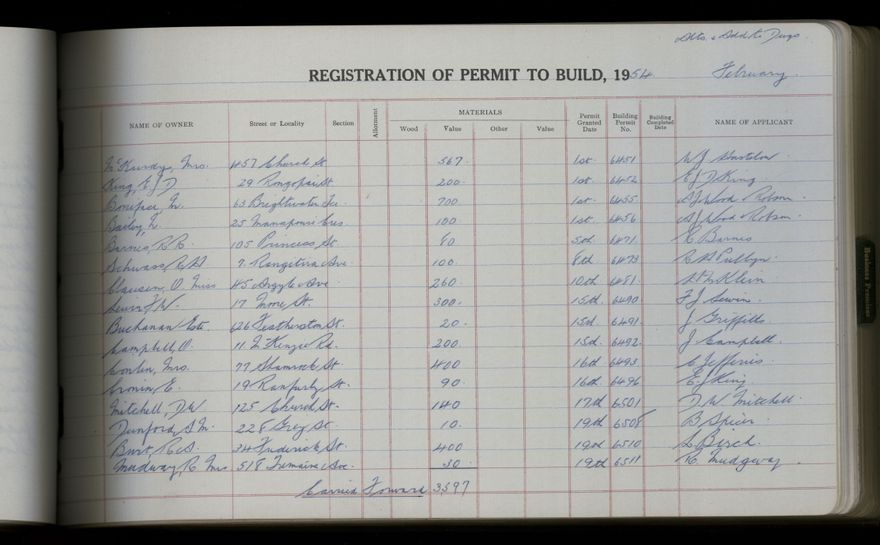 Alts. & Add to Dwgs
REGISTRATION OF PERMIT TO BUILD, 1954 February.
NAME OF OWNER Street or Locality Section Allotment MATERIALS Permit Granted Date Building Permit No. Building Completed Date NAME OF APPLICANT
Wood Value Other Value
McKurdy, Mrs. 457 Church St 567. 1st. 6451
King, E J D 29 Rongopai St 200. 1st. 6452 E J D King
Boniface, M. 63 Brightwater Tce. 700 1st. 6455 Wood Robson
Bailey, L. 25 Manapouri Cres. 100 1st. 6456 Wood Robson
Barnes, R. R. 105 Princess St. 80 5th 6471 Barnes
Schwass, R. H 7 Rangitira Ave 100. 8th 6473
Clausen, O. Miss 45 Argyle Ave 260. 10th 6481 Klein
17 St. 300. 15th 6490 F J
Buchanan Este. 626 Featherston St. 20. 15th 6491. J Griffiths
Campbell, O. 11 McKenzie Rd. 200. 15th 6492. J Campbell.
Conlin, Mrs. 77 Shamrock St. 400 16th 6493 Jefferies
Cronin, E. 19 Ranfurly St. 90. 16th 6496 E J King.
Mitchell, D W 125 Church St. 140 17th 6501 D. W. Mitchell.
Dunford, S. M. 228 Grey St. 10. 19th 6508 B Spicer
Burt, R. S. 34 Frederick St. 400 19th 6510 L. Birch.
Mudgway, R. Mrs 518 Tremaine Ave. 30. 19th 6511 R. Mudgway
Carried Forward 3597
Business Premises